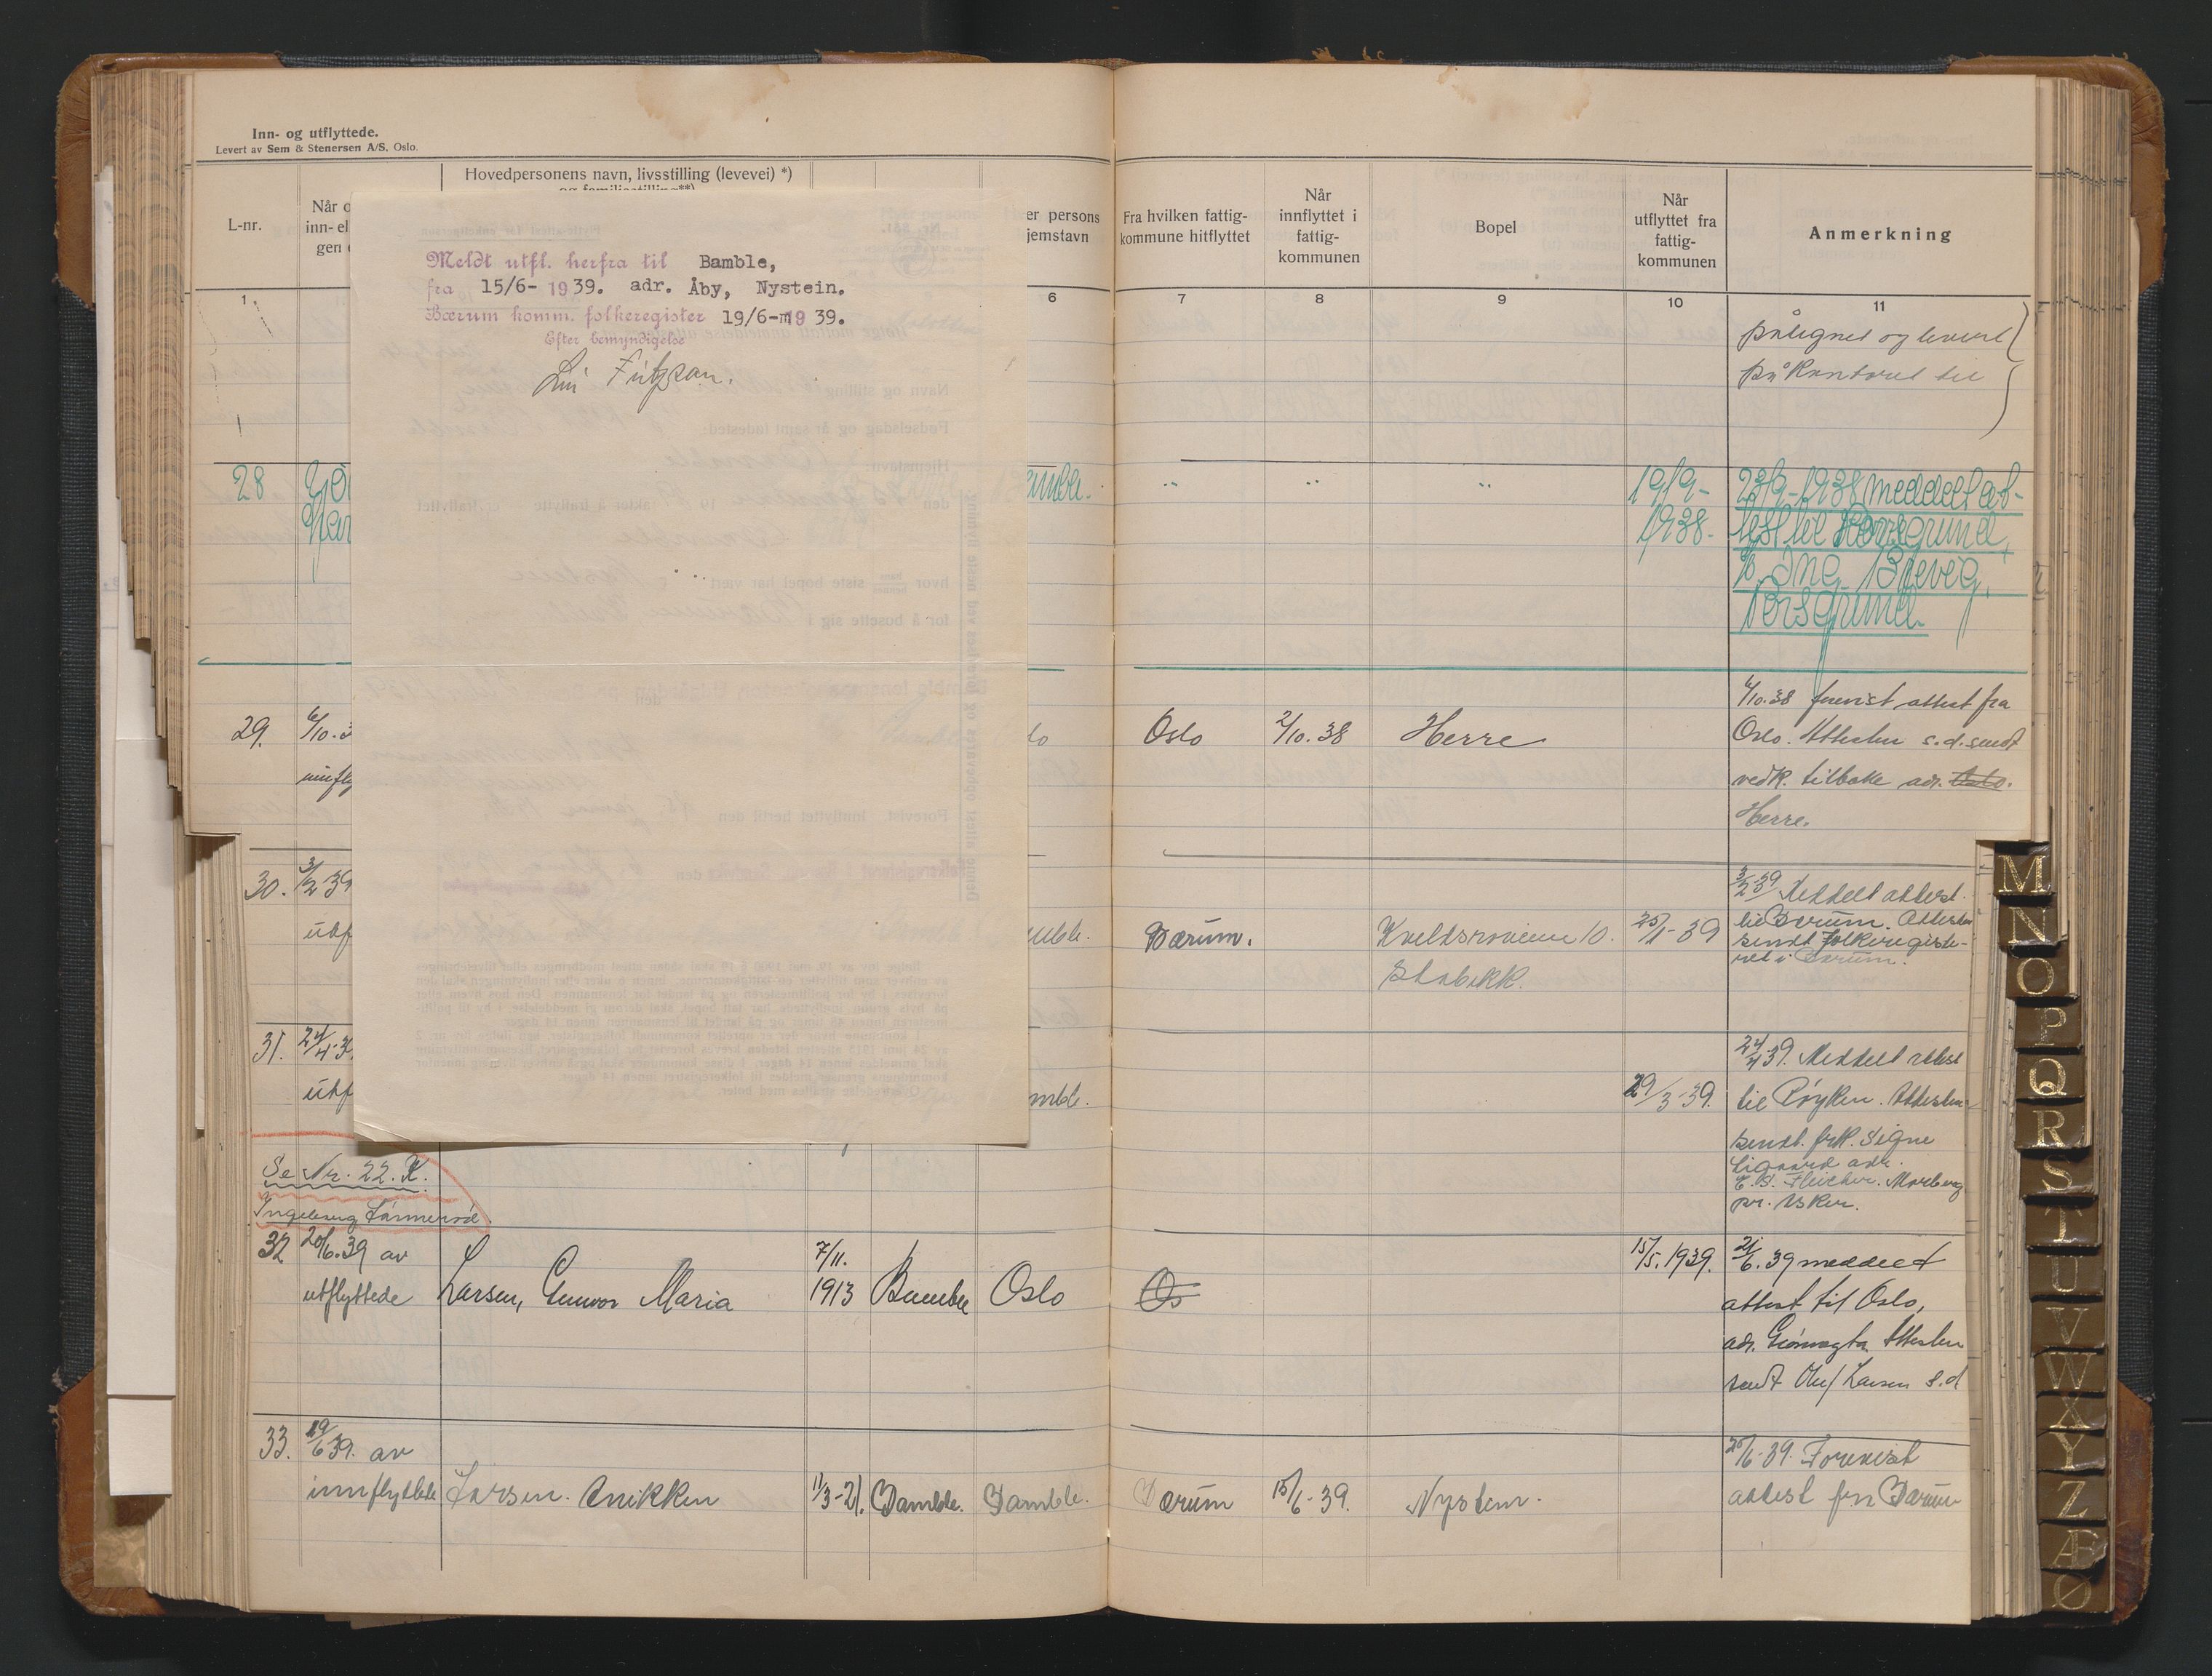 Inn- og utflyttede.
Levert av Sem & Stenersen A/S. Oslo.
L-nr.
Når o
inn- el
gen
Hovedpersonens navn, livsstilling (levevei) *)
og familiestilling**)
er persons
jemstavn
Fra hvilken fattig-
kommune hitflyttet
Når
innflyttet i
fattig-
kommunen
Bopel
Når
utflyttet fra
fattig-
kommunen
Anmerkning
1
6
7
8
9
10
11
Meldt utfl. herfra til Bamble,
fra 15/6- 1939. adr. Åby, Nystein.
Bærum komm. folkeregister 19/6-1939.
Efter bemyndigelse
pålignet og levert
på kontoret til
28
amble.
19/9-
1938-
23/9-1938 meddelt at-
test til Porsgrund,
Ing. Brevig,
Porsgrund.
29.
6/10.3
innfly
lo
Oslo
2/10.38
Herre
4/10.38 forevist attest fra
Oslo. Attesten s.d. sendt
vedk. tilbake adr. Oslo.
Herre.
30.
3/2-39
utf
mble.
Bærum.
Kveldsroveien 10.
Stabekk.
25/1-39
3/2-39 Meddelt attest
til Bærum. Attesten
sendt Folkeregiste-
ret i Bærum.
31.
24/4-3
utf
mble.
29/3-39.
24/4 39. Meddelt attest
til Røyken. Attesten
sendt. frk. Signe
adr.
Fleicher. Morberg
pr. Asker.
Se Nr. 22. K.
Ingeborg
32
20/6.39 av
utflyttede
Larsen, Gunvor Maria
7/11.
1913
Bamble
Oslo
Os
15/5.1939.
21/6.39 meddelt
attest til Oslo,
adr. Attesten
sendt Oluf Larsen s.d
33.
19/6 39. av
innflyttede
Larsen. Anikken
1/3-21.
Bamble.
Bamble.
Bærum
15/6-39.
Nystein.
20/6-39. Forevist
attest fra Bærum
M
N
O
P
Q
R
S
T
U
V
W
X
Y
Z
Æ
Ø